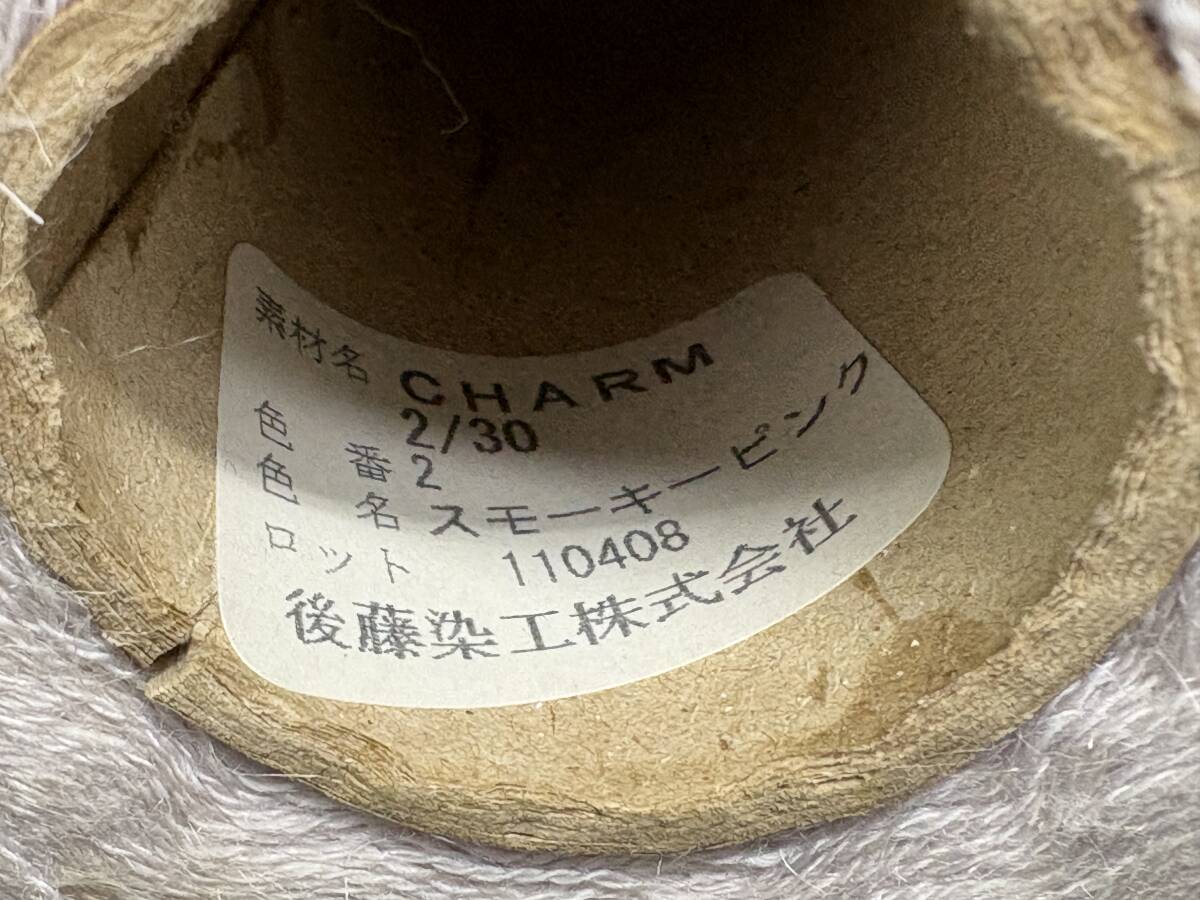 素材名 CHARM
2/30
色番 2
色名 スモーキーピンク
ロット 110408
後藤染工株式会社